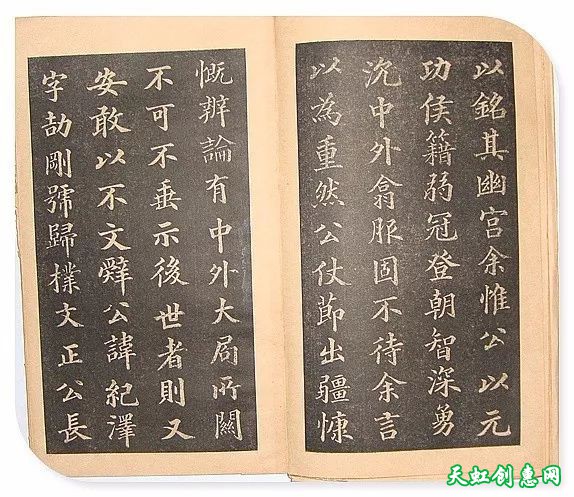 以銘其幽宫余惟公以元
功侯籍弱冠登朝智深勇
沉中外翕服固不待余言
以為重然公仗節出疆慷
慨辨論有中外大局所關
不可不垂示後世者則又
安敢以不文辭公諱紀澤
字劼剛號歸樸文正公長
天虹创意网